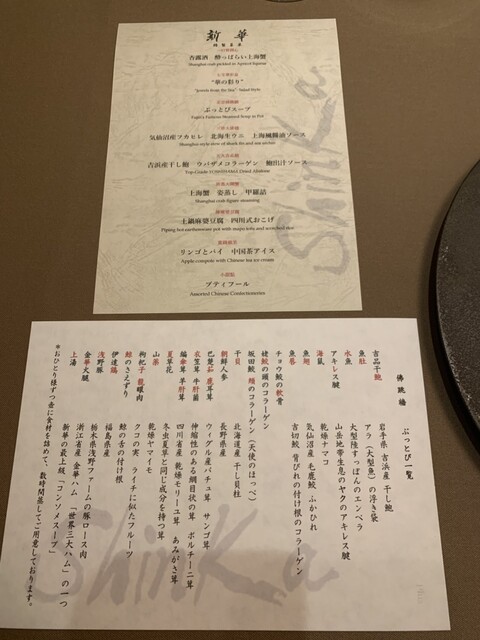 新華
杏露酒 酔っぱらい上海蟹
Shanghai crab pickled in Apricot liqueur
"華の彩り"
"Jewels from the Sea" Salad Style
ぶっとびスープ
気仙沼産フカヒレ 北海生ウニ 上海風醤油ソース
Shanghai-style stew of shark fin and sea urchin
吉浜産干し鮑 ウバザメコラーゲン 鮑出汁ソース
Top-Grade YOSHIHAMA Dried Abalone
上海蟹 姜蒸し 甲羅詰
Shanghai crab ginger steaming
土鍋麻婆豆腐 四川式おこげ
Piping hot earthenware pot with mapo tofu and scorched rice
リンゴとパイ 中国茶アイス
Apple compote with Chinese tea ice cream
小甜點
プティフール
Assorted Chinese Confectioneries
ShinKa
佛跳牆 ぶっとび一覧
吉品干鮑 岩手県 吉浜産 干し鮑
魚肚 アラ(大型魚)の浮き袋
水魚 大型陸すっぽんのエンペラ
アキレス腱 山岳地帯生息のヤクのアキレス腱
海鼠 乾燥ナマコ
魚翅 気仙沼産 毛鹿鮫 ふかひれ
魚唇 吉切鮫 背びれの付け根のコラーゲン
チョウ鮫の軟骨
姥鮫の頭のコラーゲン
坂田鮫 頬のコラーゲン(天使のほっぺ)
干貝 北海道産 干し貝柱
朝鮮人参 長野県産
巴楚茹 鹿茸 ウイグル産バチュ茸 サンゴ茸
衣笠茸 牛肝菌 伸縮性のある網目状の茸 ポルチーニ茸
編傘茸 羊肚茸 四川省産 乾燥モリーユ茸 あみがさ茸
夏草花 冬虫夏草と同じ成分を持つ茸
山薬 乾燥ヤマイモ
枸杞子 龍眼肉 クコの実 ライチに似たフルーツ
鯨のさえずり 鯨の舌の付け根
伊達鶏 福島県産
浅野豚 栃木県浅野ファームの豚ロース肉
金華火腿 浙江省産 金華ハム「世界三大ハム」の一つ
上湯 新華の最上級「コンソメスープ」
*おひとり様ずつ壺に食材を詰めて、数時間蒸してご用意しております。
ShinKa